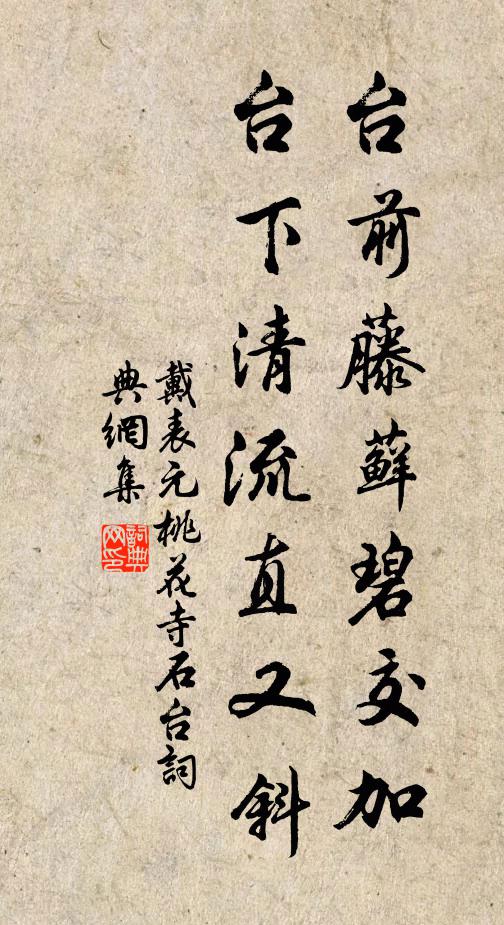 台前藤藓碧交加
台下清流直又斜
戴表元桃花寺石台詞
典網集
詞典網印